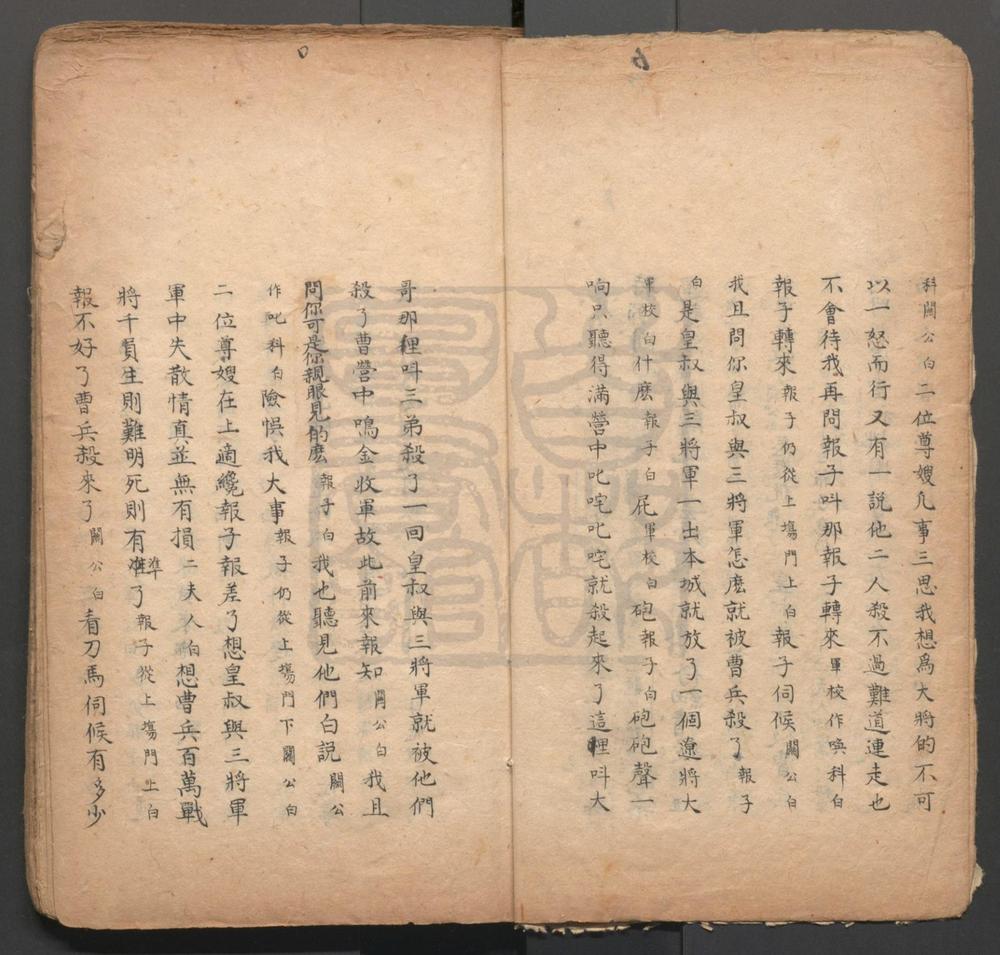 科關公白二位尊嫂凡事三思我想爲大將的不可
以一怒而行又有一説他二人殺不過難道連走也
不會待我再問報子呌那報子轉來軍校作喚科白
報子轉來報子仍從上塲門上白報子伺候關公白
我且問你皇叔與三將軍怎麽就被曹兵殺了報子
白是皇叔與三將軍一出本城就放了一個遼將大
軍校白什麽報子白屁軍校白砲報子白砲砲聲一
响只聽得滿營中叱咤叱咤就殺起來了這裡呌大
哥那裡呌三弟殺了一回皇叔與三將軍就被他們
殺了曹營中鳴金收軍故此前來報知關公白我且
問你可是你親眼見的麽報子白我也聽見他們白説關公
作叱科白險悞我大事報子仍從上塲門下關公白
二位尊嫂在上適纔報子報差了想皇叔與三將軍
軍中失散情真並無有損二夫人白想曹兵百萬戰
將千員生則難明死則有准了報子從上塲門上白
準
報不好了曹兵殺來了關公白看刀馬伺候有多少